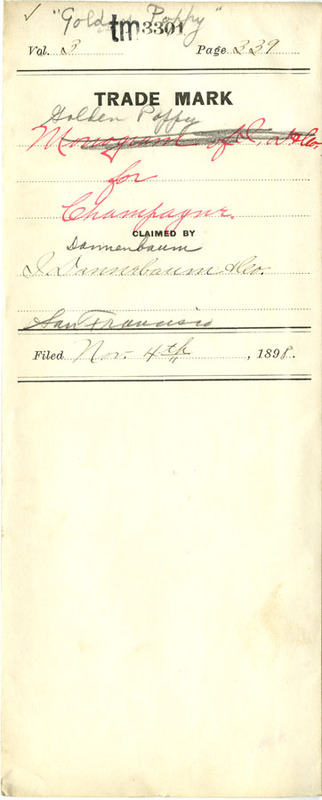 ✓ "Golden Poppy"
tm3301
Vol. 3 Page 239
TRADE MARK
Golden Poppy
Monogram of I. D. & Co.
for
Champagne.
CLAIMED BY
Dannenbaum
I Dannenbaum & Co.
San Francisco
Filed Nov. 4th, 1898.